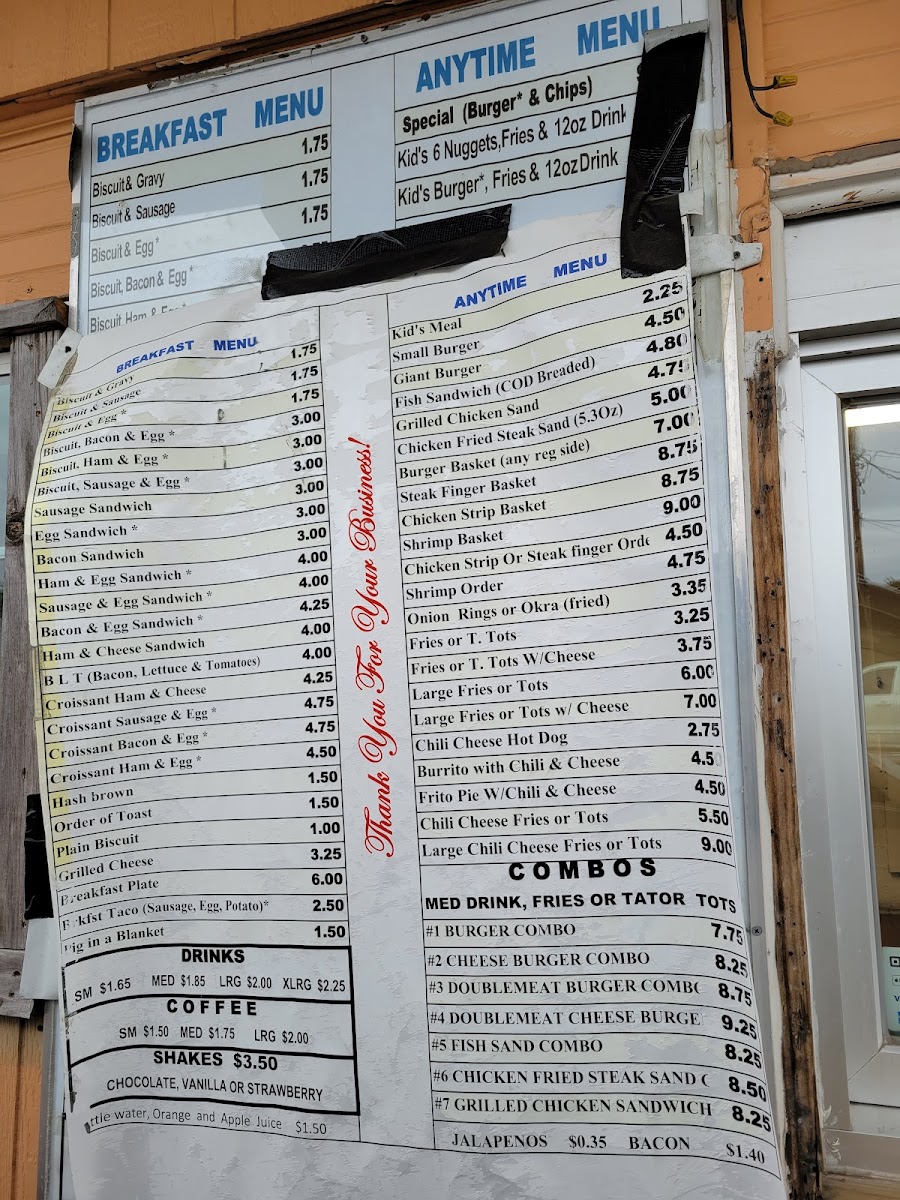 BREAKFAST MENU
Biscuit & Gravy 1.75
Biscuit & Sausage 1.75
Biscuit & Egg* 1.75
Biscuit, Bacon & Egg*
ANYTIME MENU
Special (Burger* & Chips)
Kid's 6 Nuggets,Fries & 12oz Drink
Kid's Burger*, Fries & 12oz Drink
BREAKFAST MENU
Biscuit & Gravy 1.75
Biscuit & Sausage 1.75
Biscuit & Egg * 1.75
Biscuit, Bacon & Egg * 3.00
Biscuit, Ham & Egg * 3.00
Biscuit, Sausage & Egg * 3.00
Sausage Sandwich 3.00
Egg Sandwich * 3.00
Bacon Sandwich 3.00
Ham & Egg Sandwich * 4.00
Sausage & Egg Sandwich * 4.00
Bacon & Egg Sandwich * 4.25
Ham & Cheese Sandwich 4.00
B L T (Bacon, Lettuce & Tomatoes) 4.00
Croissant Ham & Cheese 4.25
Croissant Sausage & Egg * 4.75
Croissant Bacon & Egg * 4.75
Croissant Ham & Egg * 4.50
Hash brown 1.50
Order of Toast 1.50
Plain Biscuit 1.00
Grilled Cheese 3.25
Breakfast Plate 6.00
kfst Taco (Sausage, Egg, Potato)* 2.50
Pig in a Blanket 1.50
DRINKS
SM $1.65 MED $1.85 LRG $2.00 XLRG $2.25
COFFEE
SM $1.50 MED $1.75 LRG $2.00
SHAKES $3.50
CHOCOLATE, VANILLA OR STRAWBERRY
ttle water, Orange and Apple Juice $1.50
Thank You For Your Business!
ANYTIME MENU
Kid's Meal
Small Burger 2.25
Giant Burger 4.50
Fish Sandwich (COD Breaded) 4.80
Grilled Chicken Sand 4.75
Chicken Fried Steak Sand (5.3Oz) 5.00
Burger Basket (any reg side) 7.00
Steak Finger Basket 8.75
Chicken Strip Basket 8.75
Shrimp Basket 9.00
Chicken Strip Or Steak finger Orde 4.50
Shrimp Order 4.75
Onion Rings or Okra (fried) 3.35
Fries or T. Tots 3.25
Fries or T. Tots W/Cheese 3.75
Large Fries or Tots 6.00
Large Fries or Tots w/ Cheese 7.00
Chili Cheese Hot Dog 2.75
Burrito with Chili & Cheese 4.5
Frito Pie W/Chili & Cheese 4.50
Chili Cheese Fries or Tots 5.50
Large Chili Cheese Fries or Tots 9.00
COMBOS
MED DRINK, FRIES OR TATOR TOTS
#1 BURGER COMBO 7.75
#2 CHEESE BURGER COMBO 8.25
#3 DOUBLEMEAT BURGER COMBO 8.75
#4 DOUBLEMEAT CHEESE BURGE 9.25
#5 FISH SAND COMBO 8.25
#6 CHICKEN FRIED STEAK SAND C 8.50
#7 GRILLED CHICKEN SANDWICH 8.25
JALAPENOS $0.35 BACON $1.40